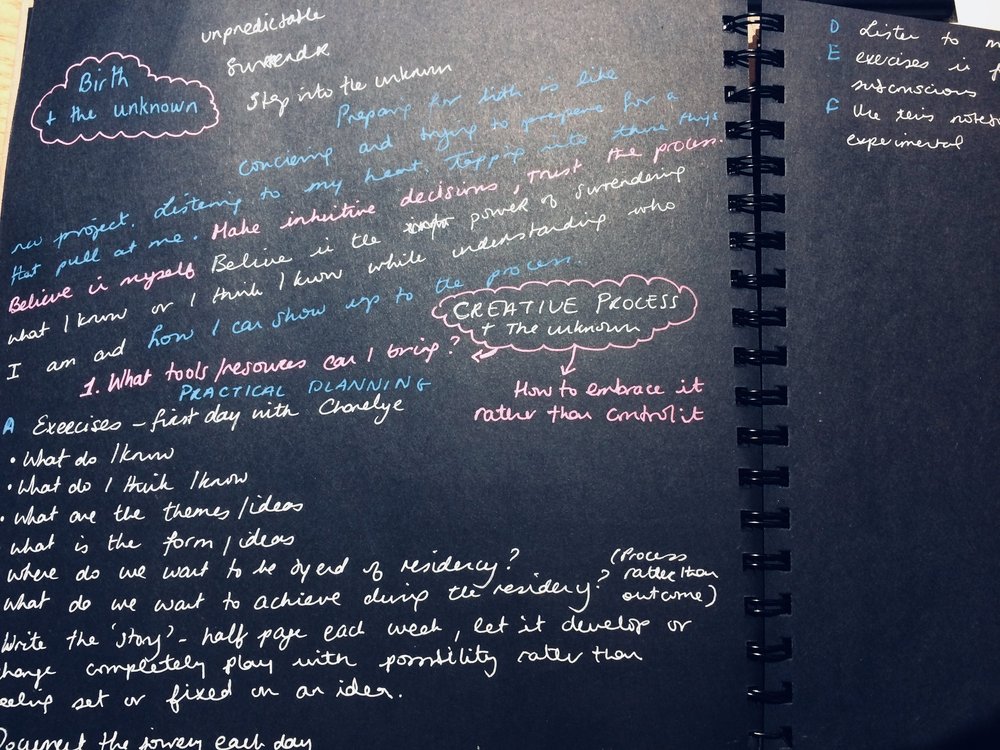 unpredictable
Surrender
Step into the unknown
Birth
+ the unknown
Prepany for birth is like
concieving and trying to prepare for a
new project. Listening to my heart. Tapping into those things
that pull at me. Make intuitive decisions, Trust the process.
Believe in myself Believe in the power of surrendering
what I know or I think I know while understanding who
I am and how I can show up to the process.
CREATIVE PROCESS
+ The unknown
1. What tools/resources can I bring?
How to embrace it
rather than control it
PRACTICAL PLANNING
A Exercises - first day with Charelye
• What do I know
• What do I think I know
• What are the themes/ideas
What is the form/ideas
Where do we want to be by end of residency?
What do we want to achieve during the residency? (Process
rather than
outcome)
Write the 'story' - half page each week, let it develop or
change completely play with possibility rather than
feeling set or fixed on an idea.
Document the journey each day
D Listen to
E exercises in
subconscious
F Use this
experimental